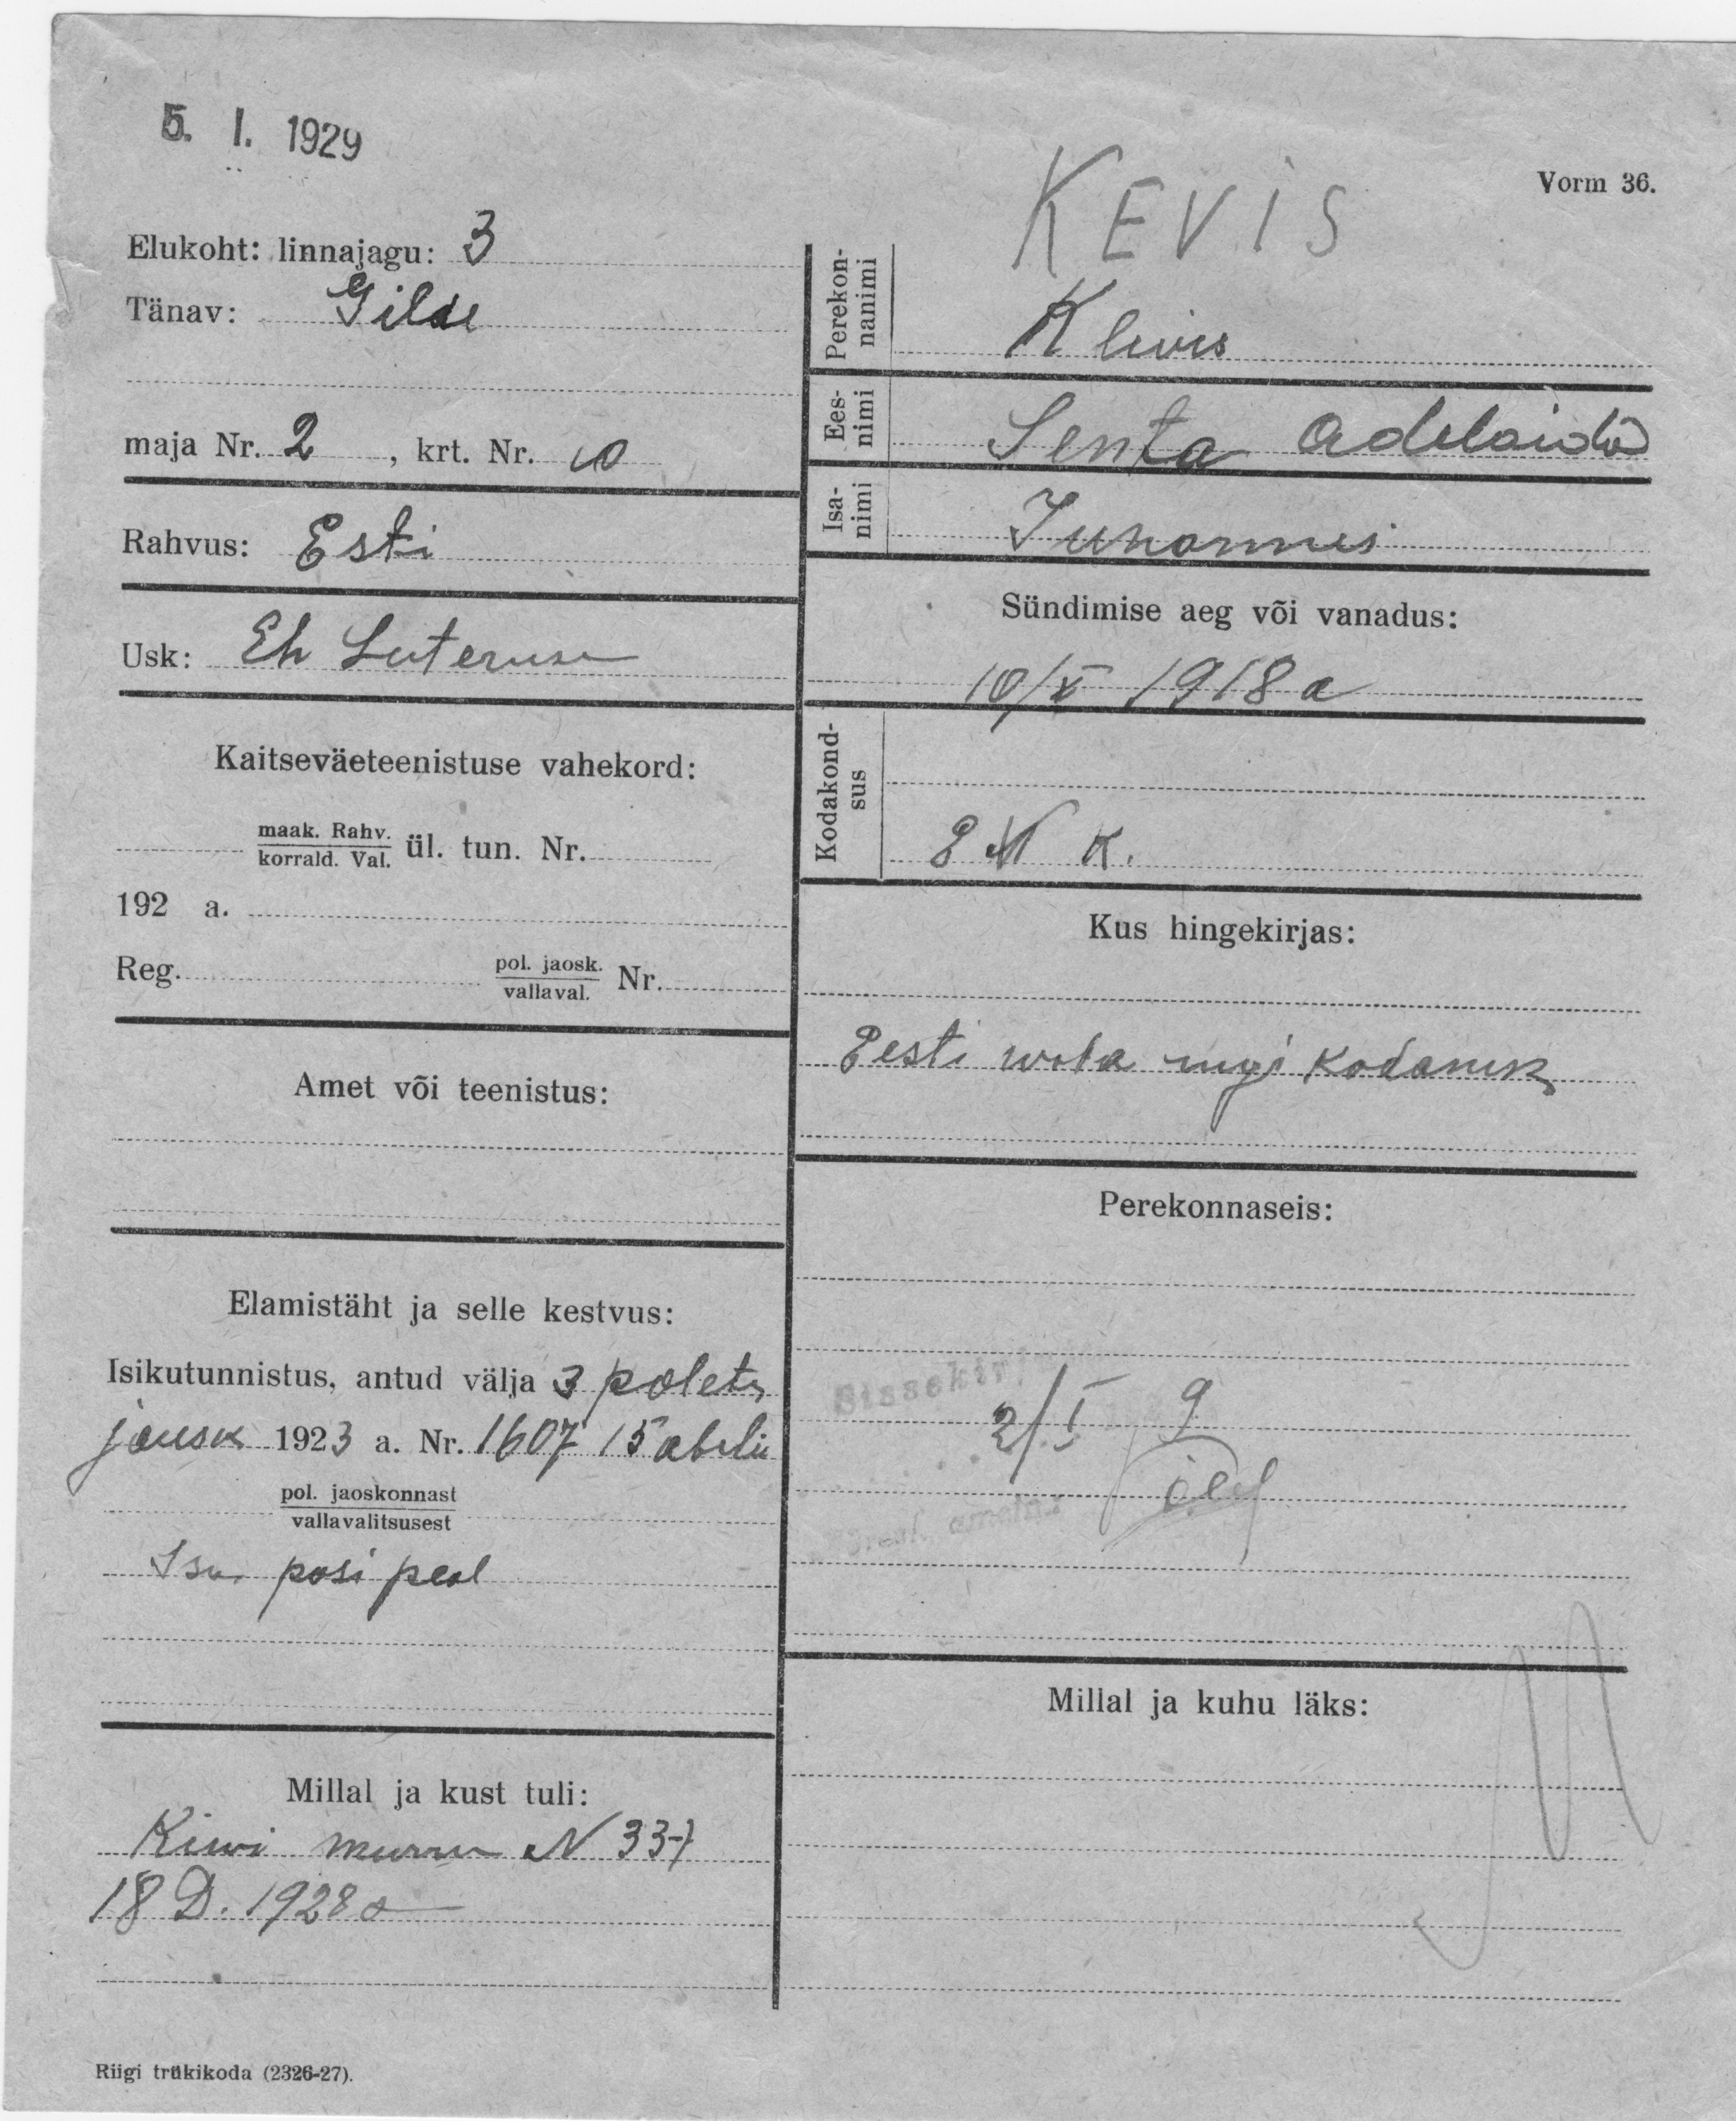 5. I. 1929
Vorm 36.
KEVIS
Elukoht: linnajagu: 3
Tänav: Gilde
maja Nr. 2, krt. Nr. 10
Rahvus: Esti
Usk: Luteruse
Kaitseväeteenistuse vahekord:
maak. Rahv.
korrald. Val.
ül. tun. Nr.
192 a.
Reg. pol. jaosk. Nr.
vallaval.
Amet või teenistus:
Elamistäht ja selle kestvus:
Isikutunnistus, antud välja 3 polets
jausk 1923 a. Nr. 1607 15
pol. jaoskonnast
vallavalitsusest
Isa pasi peal
Millal ja kust tuli:
Kiwi murru N 33-7
18 D. 1928 a
Riigi trükikoda (2326-27).
Perekon-
nanimi
Klevis
Ees-
nimi
Senta Adelaida
Isa-
nimi
Juhannes
Sündimise aeg või vanadus:
10/X 1918 a
Kodakond-
sus
E W K.
Kus hingekirjas:
Eesti waba riigi kodanik
Perekonnaseis:
Sissekirj
2/I 9
Millal ja kuhu läks: